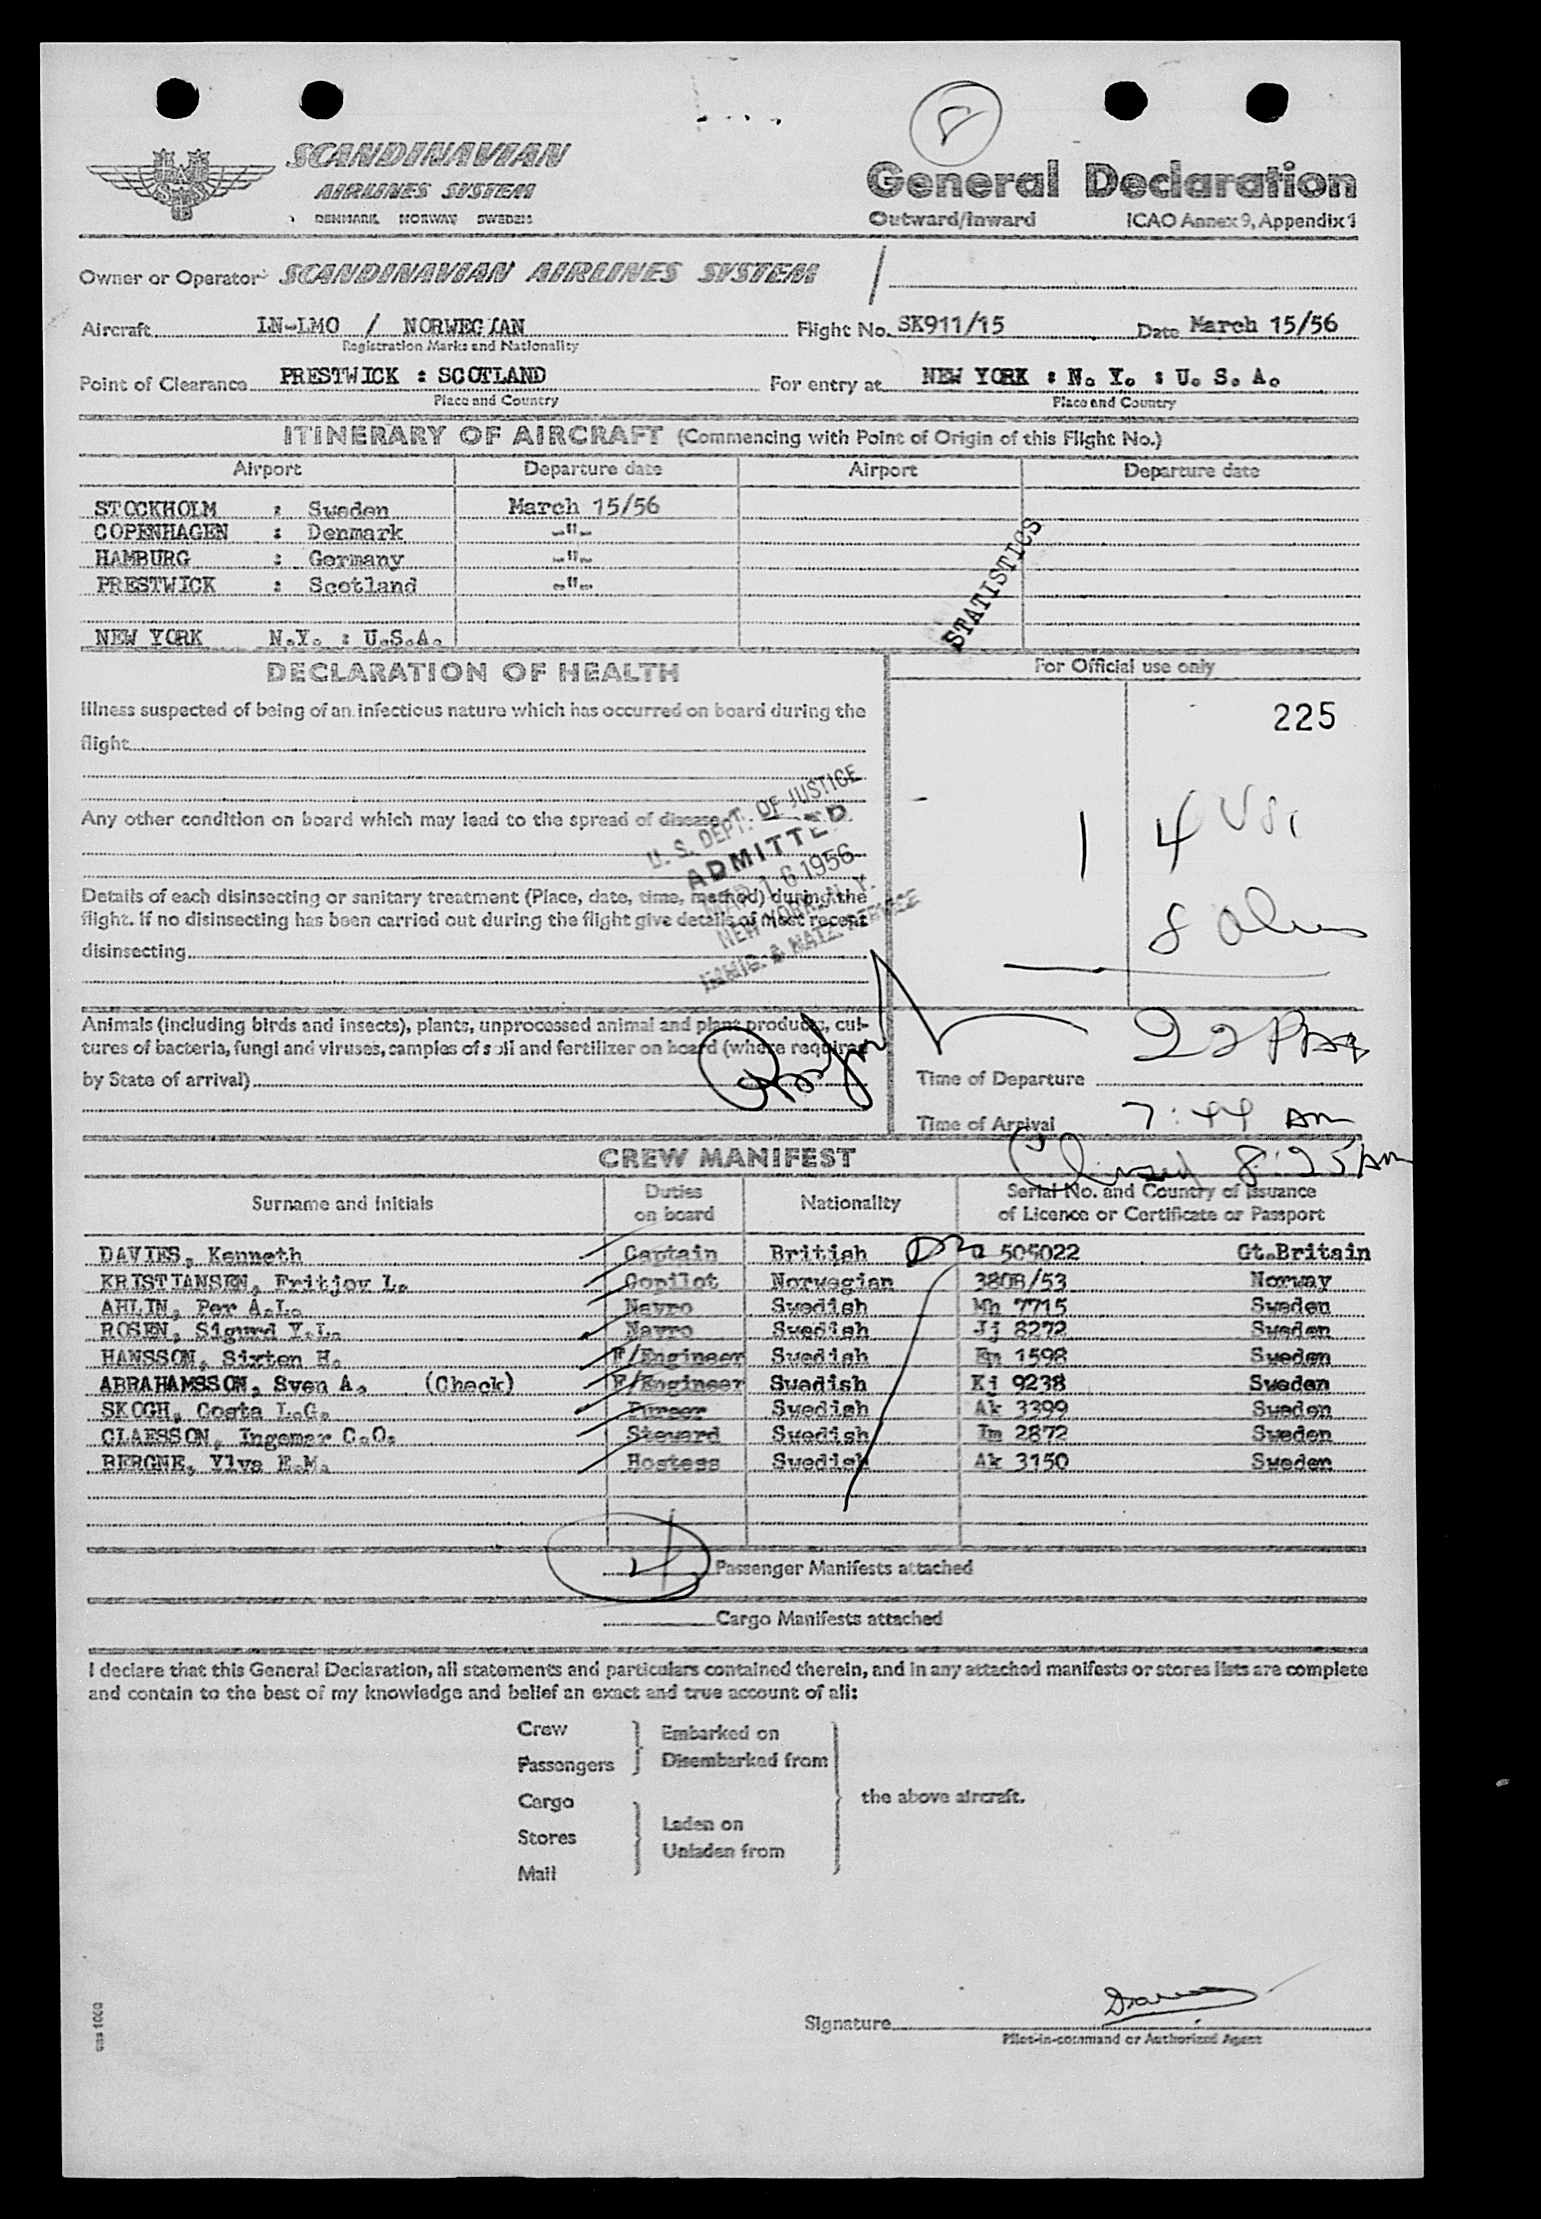 SCANDINAVIAN
AIRLINES SYSTEM
DENMARK NORWAY SWEDEN
General Declaration
Outward/Inward ICAO Annex 9, Appendix 1
Owner or Operator SCANDINAVIAN AIRLINES SYSTEM
Aircraft LN-LMO / NORWEGIAN Flight No. SK911/15 Date March 15/56
Registration Marks and Nationality
Point of Clearance PRESTWICK : SCOTLAND For entry at NEW YORK : N. Y. : U. S. A.
Place and Country Place and Country
ITINERARY OF AIRCRAFT (Commencing with Point of Origin of this Flight No.)
Airport Departure date Airport Departure date
STOCKHOLM : Sweden March 15/56
COPENHAGEN : Denmark -"-
HAMBURG : Germany -"-
PRESTWICK : Scotland -"-
NEW YORK N.Y. : U.S.A.
STATISTICS
DECLARATION OF HEALTH
For Official use only
Illness suspected of being of an infectious nature which has occurred on board during the
flight
225
Any other condition on board which may lead to the spread of disease
U. S. DEPT. OF JUSTICE
ADMITTED
MAR 16 1956
NEW YORK, N.Y.
IMMIG. & NATZ. SERVICE
1 4
8
Details of each disinsecting or sanitary treatment (Place, date, time, method) during the
flight. If no disinsecting has been carried out during the flight give details of most recent
disinsecting
Animals (including birds and insects), plants, unprocessed animal and plant products, cul-
tures of bacteria, fungi and viruses, samples of soil and fertilizer on board (where required
by State of arrival)
22
Time of Departure
Time of Arrival 7:44 am
8:25 AM
CREW MANIFEST
Surname and Initials Duties on board Nationality Serial No. and Country of Issuance
of Licence or Certificate or Passport
DAVIES, Kenneth Captain British 505022 Gt.Britain
KRISTIANSEN, Fritjov L. Copilot Norwegian 380B/53 Norway
AHLIN, Per A.L. Navro Swedish Mh 7715 Sweden
ROSEN, Sigurd Y.L. Navro Swedish Jj 8272 Sweden
HANSSON, Sixten H. F/Engineer Swedish Em 1598 Sweden
ABRAHAMSSON, Sven A. (Check) F/Engineer Swedish Kj 9238 Sweden
SKOGH, Costa L.G. Purser Swedish Ak 3399 Sweden
CLAESSON, Ingemar C.O. Steward Swedish Im 2872 Sweden
BERGNE, Ylva E.M. Hostess Swedish Ak 3150 Sweden
Passenger Manifests attached
Cargo Manifests attached
I declare that this General Declaration, all statements and particulars contained therein, and in any attached manifests or stores lists are complete
and contain to the best of my knowledge and belief an exact and true account of all:
Crew Embarked on
Passengers Disembarked from
Cargo the above aircraft.
Stores Laden on
Unladen from
Mail
sas 1000
Signature
Pilot-in-command or Authorized Agent